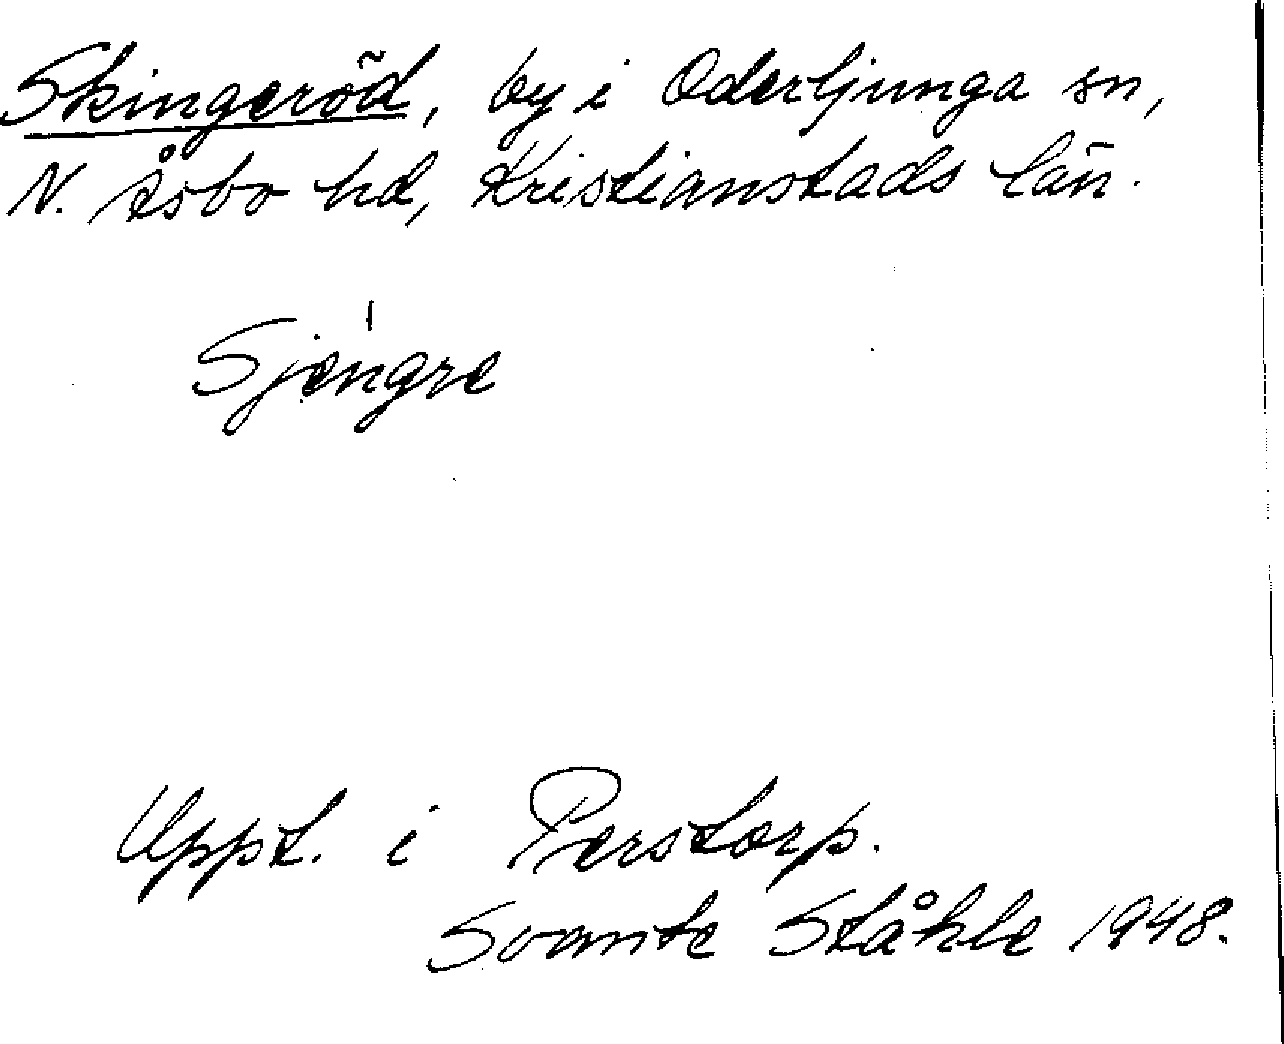 Skingeröd, by i Oderljunga sn,
N. Åsbo hd, Kristianstads län.
Sjengre
Uppt. i Perstorp.
Svante Ståhle 1948.